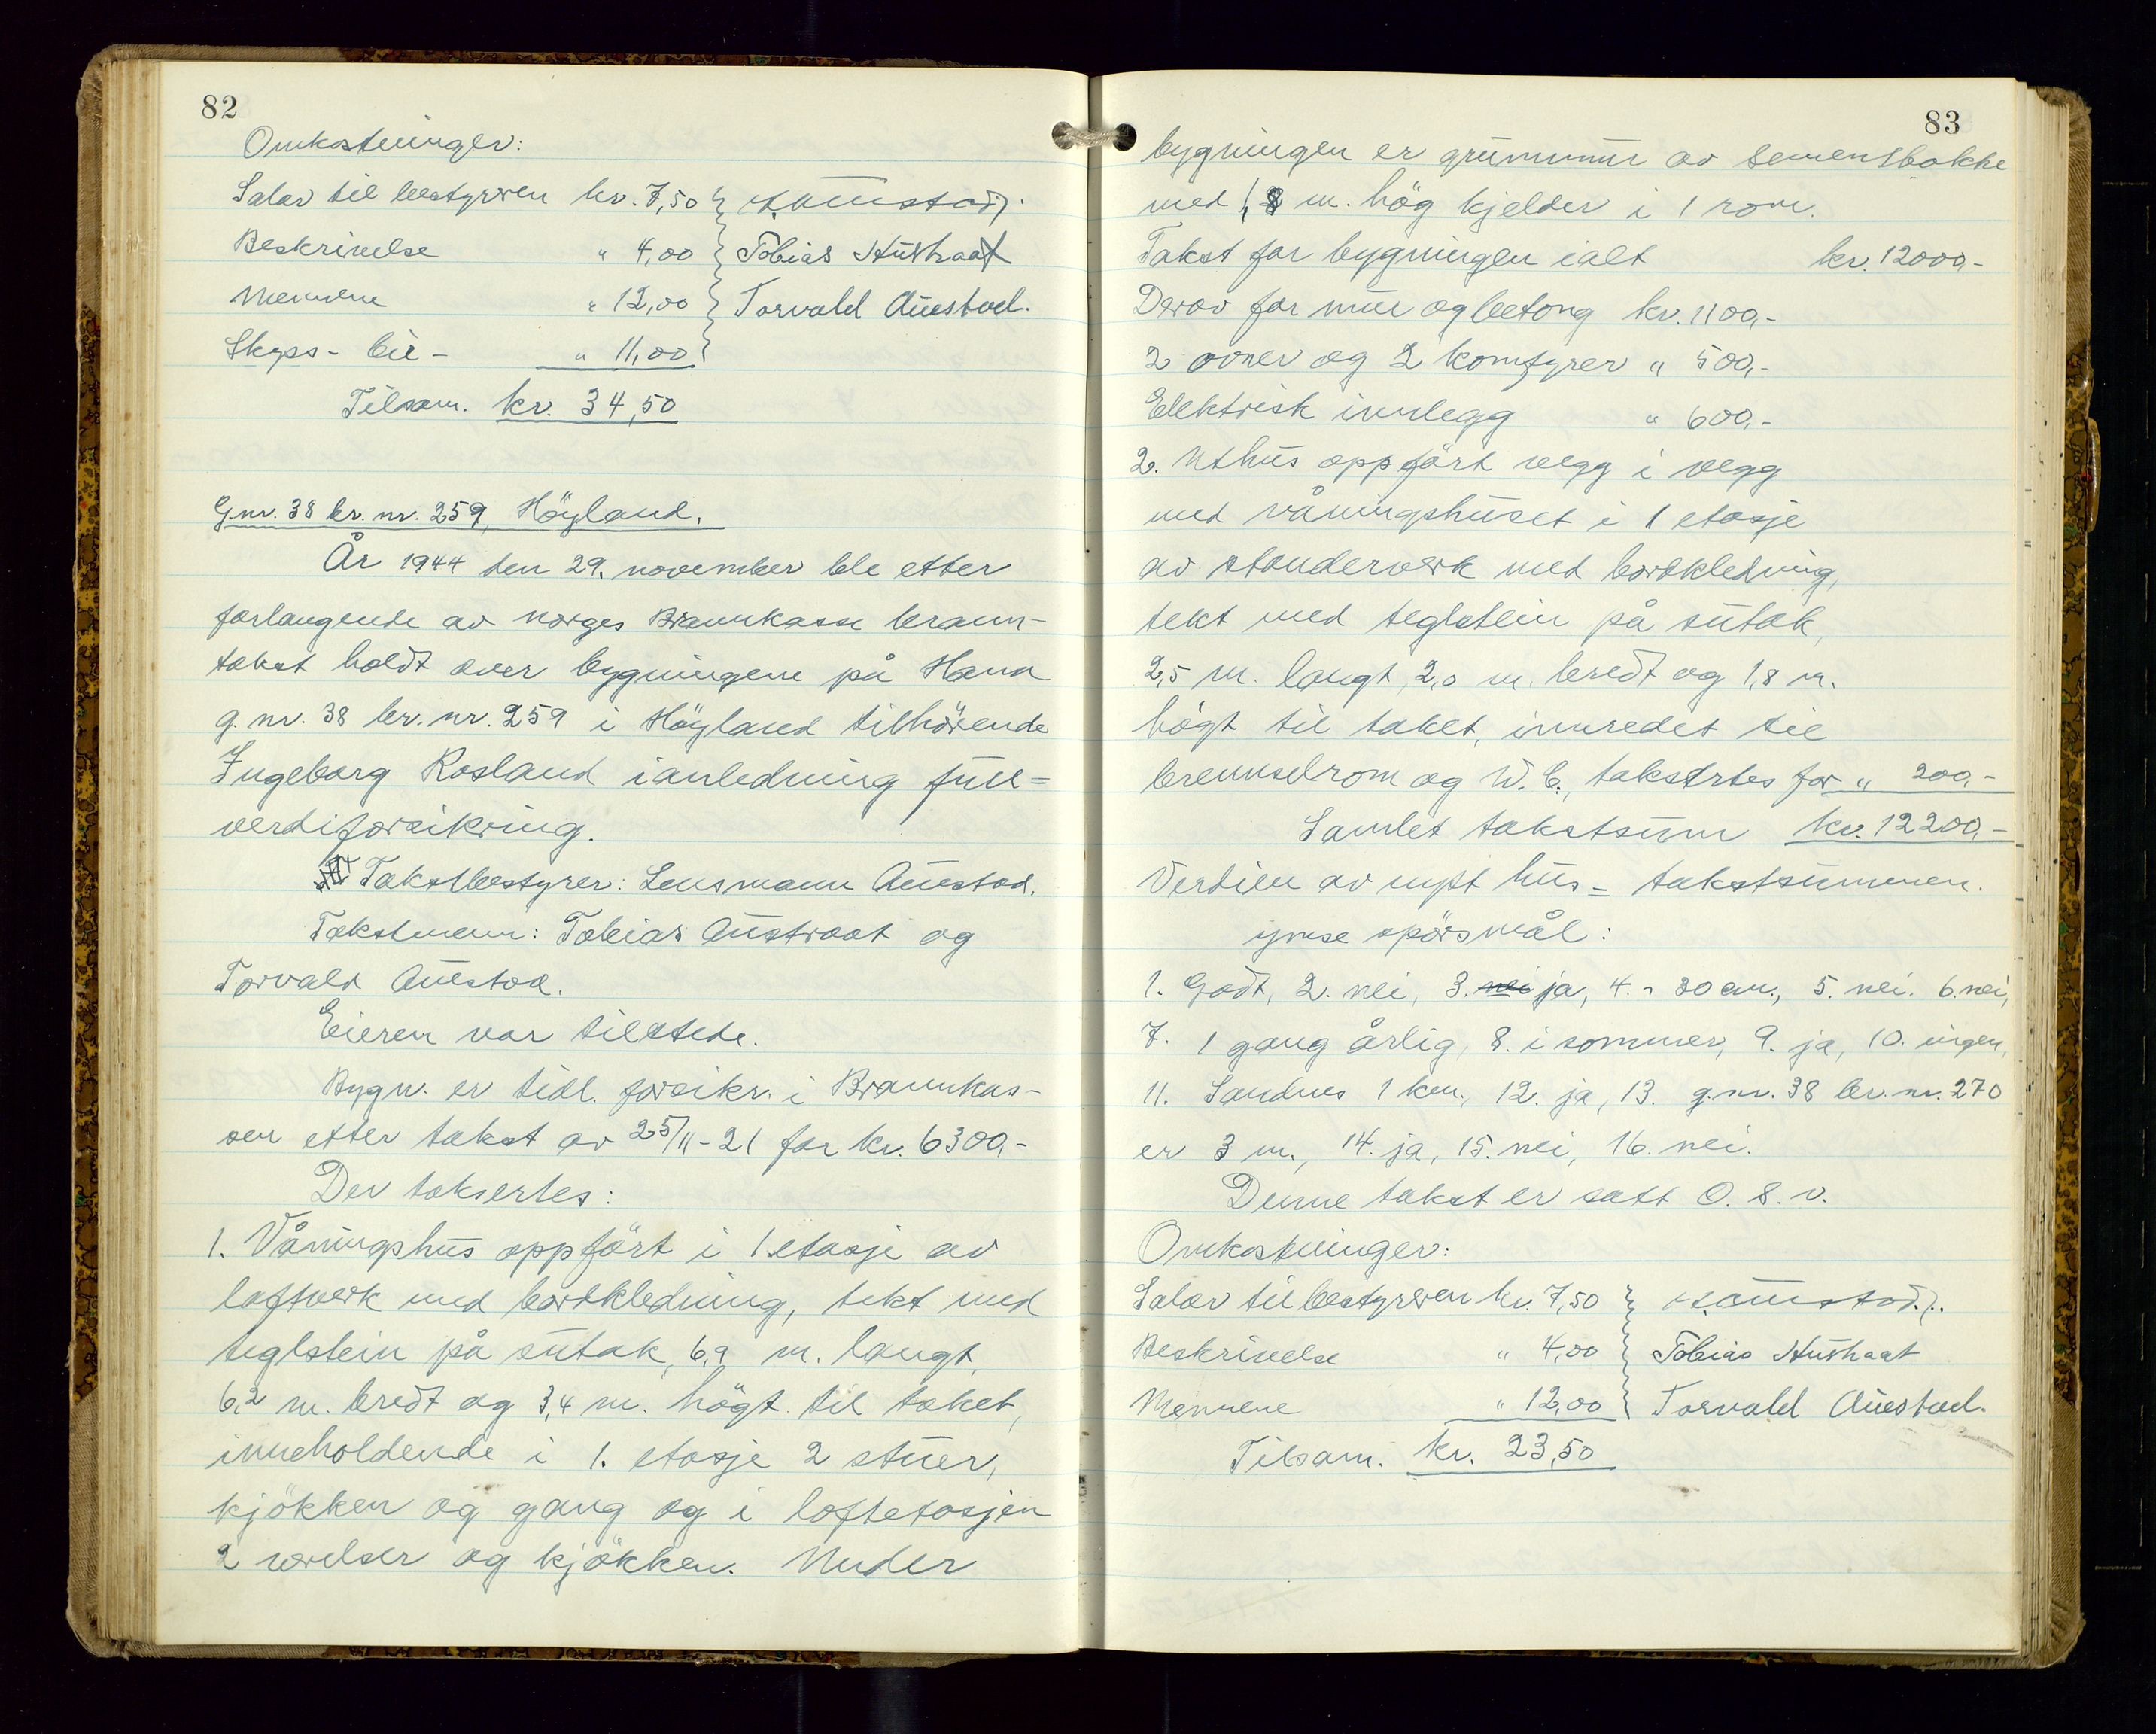 82
Omkostninger:
Salar til bestyreren kr. 7,50
Beskrivelse " 4,00 Tobias Austraat
Mennene " 12,00 Torvald Auestad.
Skyss - bil - " 11,00
Tilsam. kr. 34,50
G.nr. 38 br. nr. 259, Höyland.
År 1944 den 29. november ble etter
forlangende av Norges Brannkasse brann-
takst holdt over bygningene på Hana
g.nr. 38 br. nr. 259 i Höyland tilhörende
Ingeborg Rosland ianledning full=
verdiforsikring.
Takstbestyrer: Lensmann Auestad.
Takstmenn: Tobias Austraat og
Torvald Auestad.
Eieren var tilstede.
Bygn. er tidl. forsikr. i Brannkas-
sen etter takst av 25/11-21 for kr. 6300,-
Der taksertes:
1. Våningshus oppfört i 1 etasje av
laftverk med bordkledning, tekt med
teglstein på sutak, 6,9 m. langt,
6,2 m. bredt og 3,4 m. högt til taket,
inneholdende i 1. etasje 2 stuer,
kjökken og gang og i loftetasjen
2 værelser og kjökken. Under
83
bygningen er grunnmur av sementblokke
med 1,8 m. hög kjelder i 1 rom.
Takst for bygningen ialt kr. 12000,-
Derav for mur og betong kr. 1100,-
2 ovner og 2 komfyrer " 500,-
Elektrisk innlegg " 600,-
2. Uthus oppfört vegg i vegg
med våningshuset i 1 etasje
av standerverk med bordkledning,
tekt med teglstein på sutak,
2,5 m. langt, 2,0 m. bredt og 1,8 m.
högt til taket, innredet til
brennselrom og W.C., takstrtes for " 200,-
Samlet takstsum kr. 12200,-
Verdien av nytt hus = takstsummen.
ymse spörsmål:
1. Godt, 2. nei, 3. nei ja, 4. - 30 cm., 5. nei. 6. nei,
7. 1 gang årlig, 8. i sommer, 9. ja, 10. ingen,
11. Sandnes 1 km., 12. ja, 13. g.nr. 38 br. nr. 270
er 3 m., 14. ja, 15. nei, 16. nei.
Denne takst er satt O. s. v.
Omkostninger:
Salar til bestyreren kr. 7,50
Beskrivelse " 4,00 Tobias Austraat
Mennene " 12,00 Torvald Auestad.
Tilsam. kr. 23,50